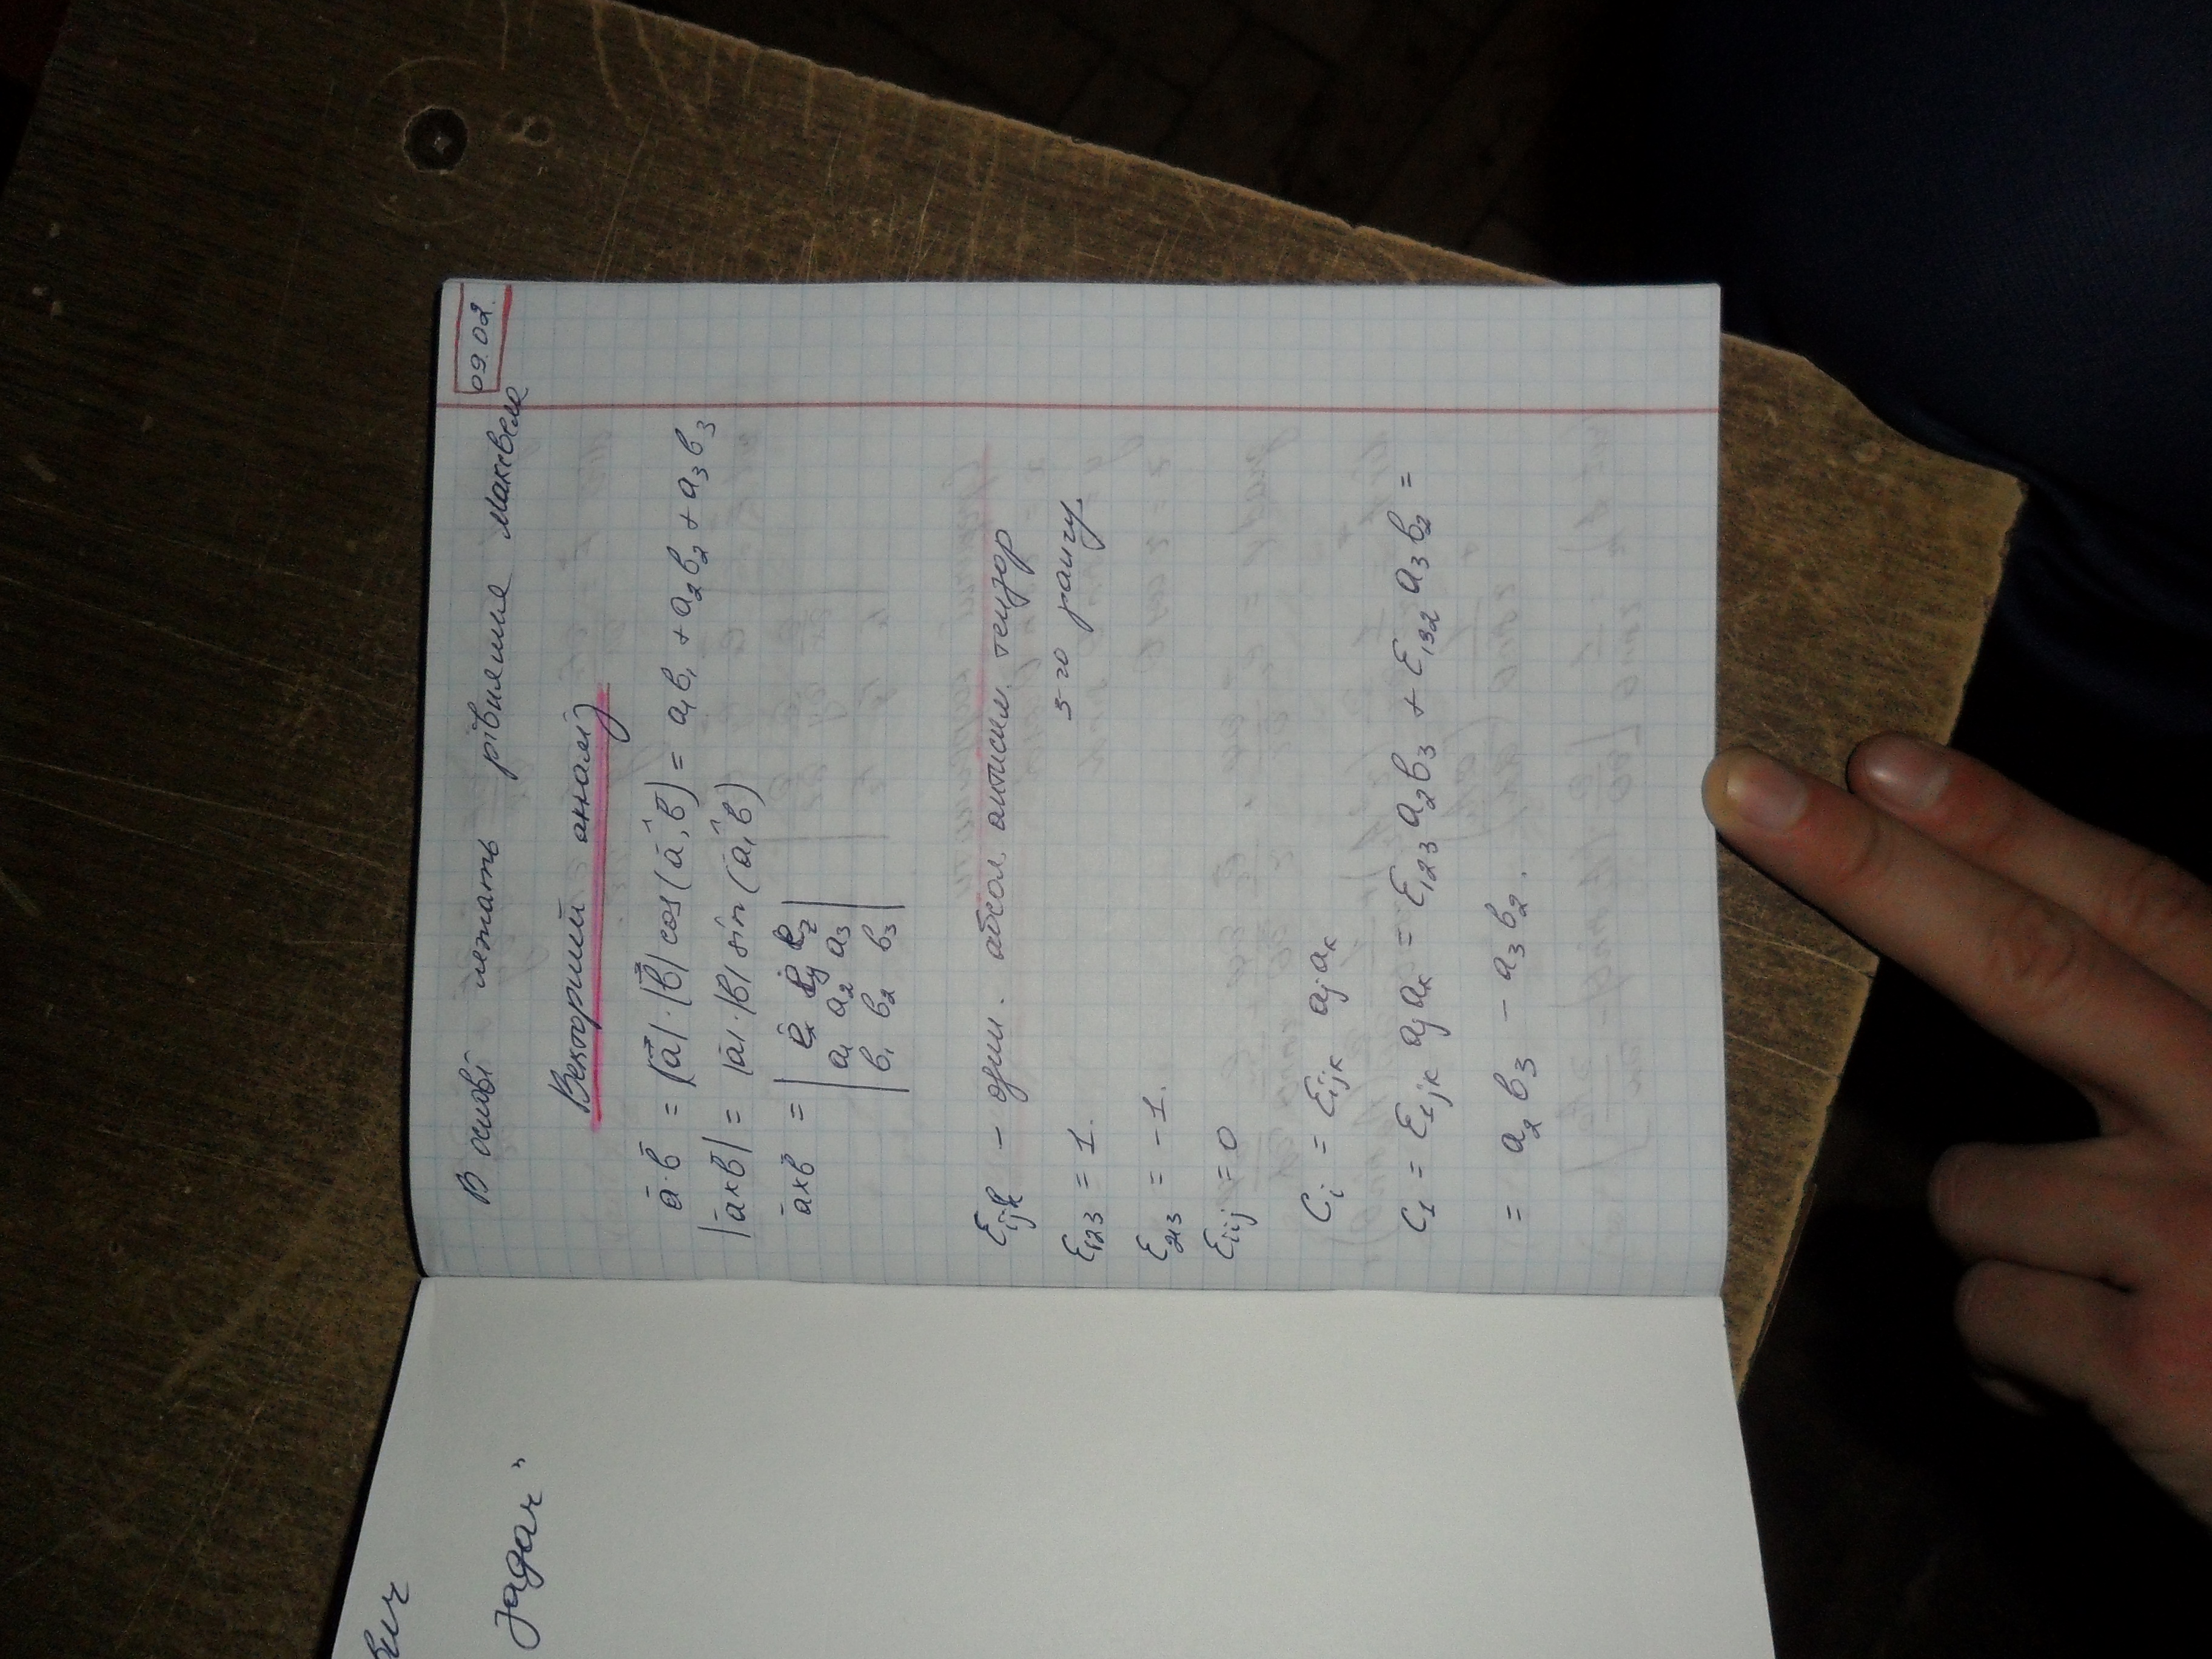 09.02.
В основі лежать рівняння Максвела
Векторний аналіз
ā·b̄ = |a⃗|·|b⃗| cos(ā,^b̄) = a₁b₁ + a₂b₂ + a₃b₃
|ā×b̄| = |ā|·|b̄| sin(ā,^b̄)
ā×b̄ = | ēₓ ē_y ē_z |
| a₁ a₂ a₃ |
| b₁ b₂ b₃ |
ε_ijk – один. абсол. антисим. тензор
3-го рангу.
ε₁₂₃ = 1.
ε₂₁₃ = -1.
ε_iij = 0
C_i = ε_ijk a_j a_k
C₁ = ε_1jk a_j a_k = ε₁₂₃ a₂b₃ + ε₁₃₂ a₃b₂ =
= a₂b₃ - a₃b₂.
вич
задач"